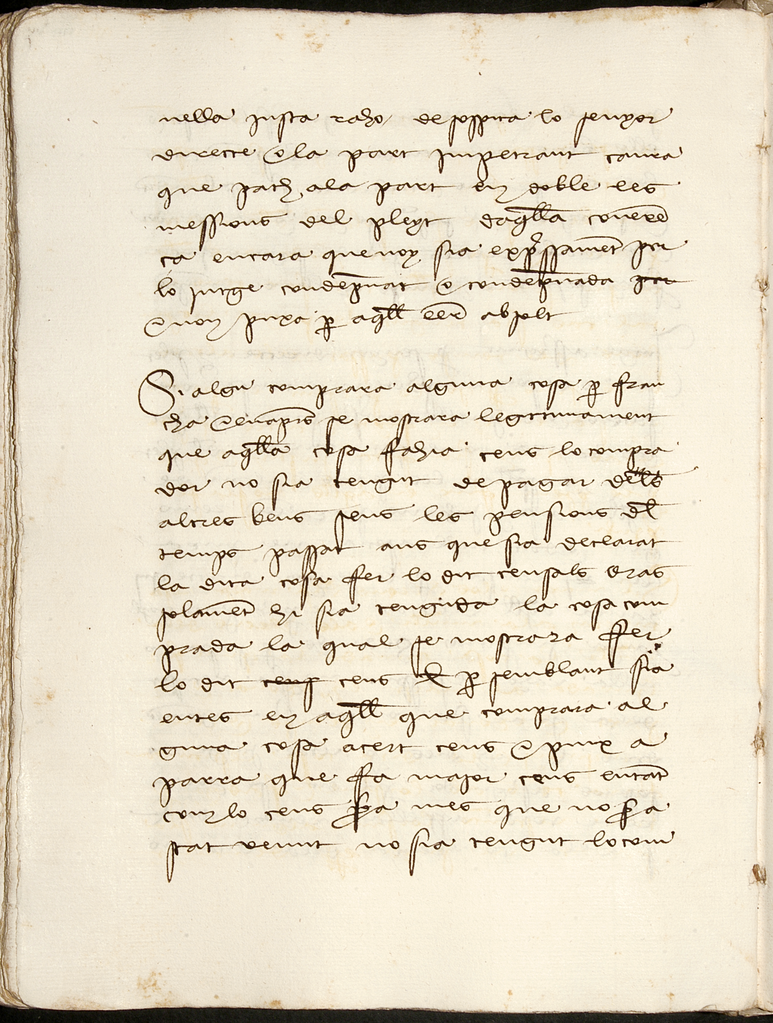 nella justa raho de sospita lo senyor
directe o la part impetrant caura
que pach ala part en doble les
messions del pleyt daqlla
ca encara que noy sia expssament per
lo jutge condepnat o condepnada per
e non puxa p aqll eer absolt
Si algu comprara alguna cosa p fran
cha e enapres se mostrara legittimament
que aqlla cosa fahia cens lo compra
dor no sia tengut de pagar dels
altres bens seus les pensions dl
temps passat ans que sia declarat
la dita cosa fer lo dit censals
solament hi sia tenguda la cosa com
prada la qual se mostrara fer
lo dit cens cens E p semblant sia
entes en aqll que comprara al
guna cosa a cert cens e puix a
parra que fa major cens en tant
com lo cens sera mes que no sera
stat venut no sia tengut lo com